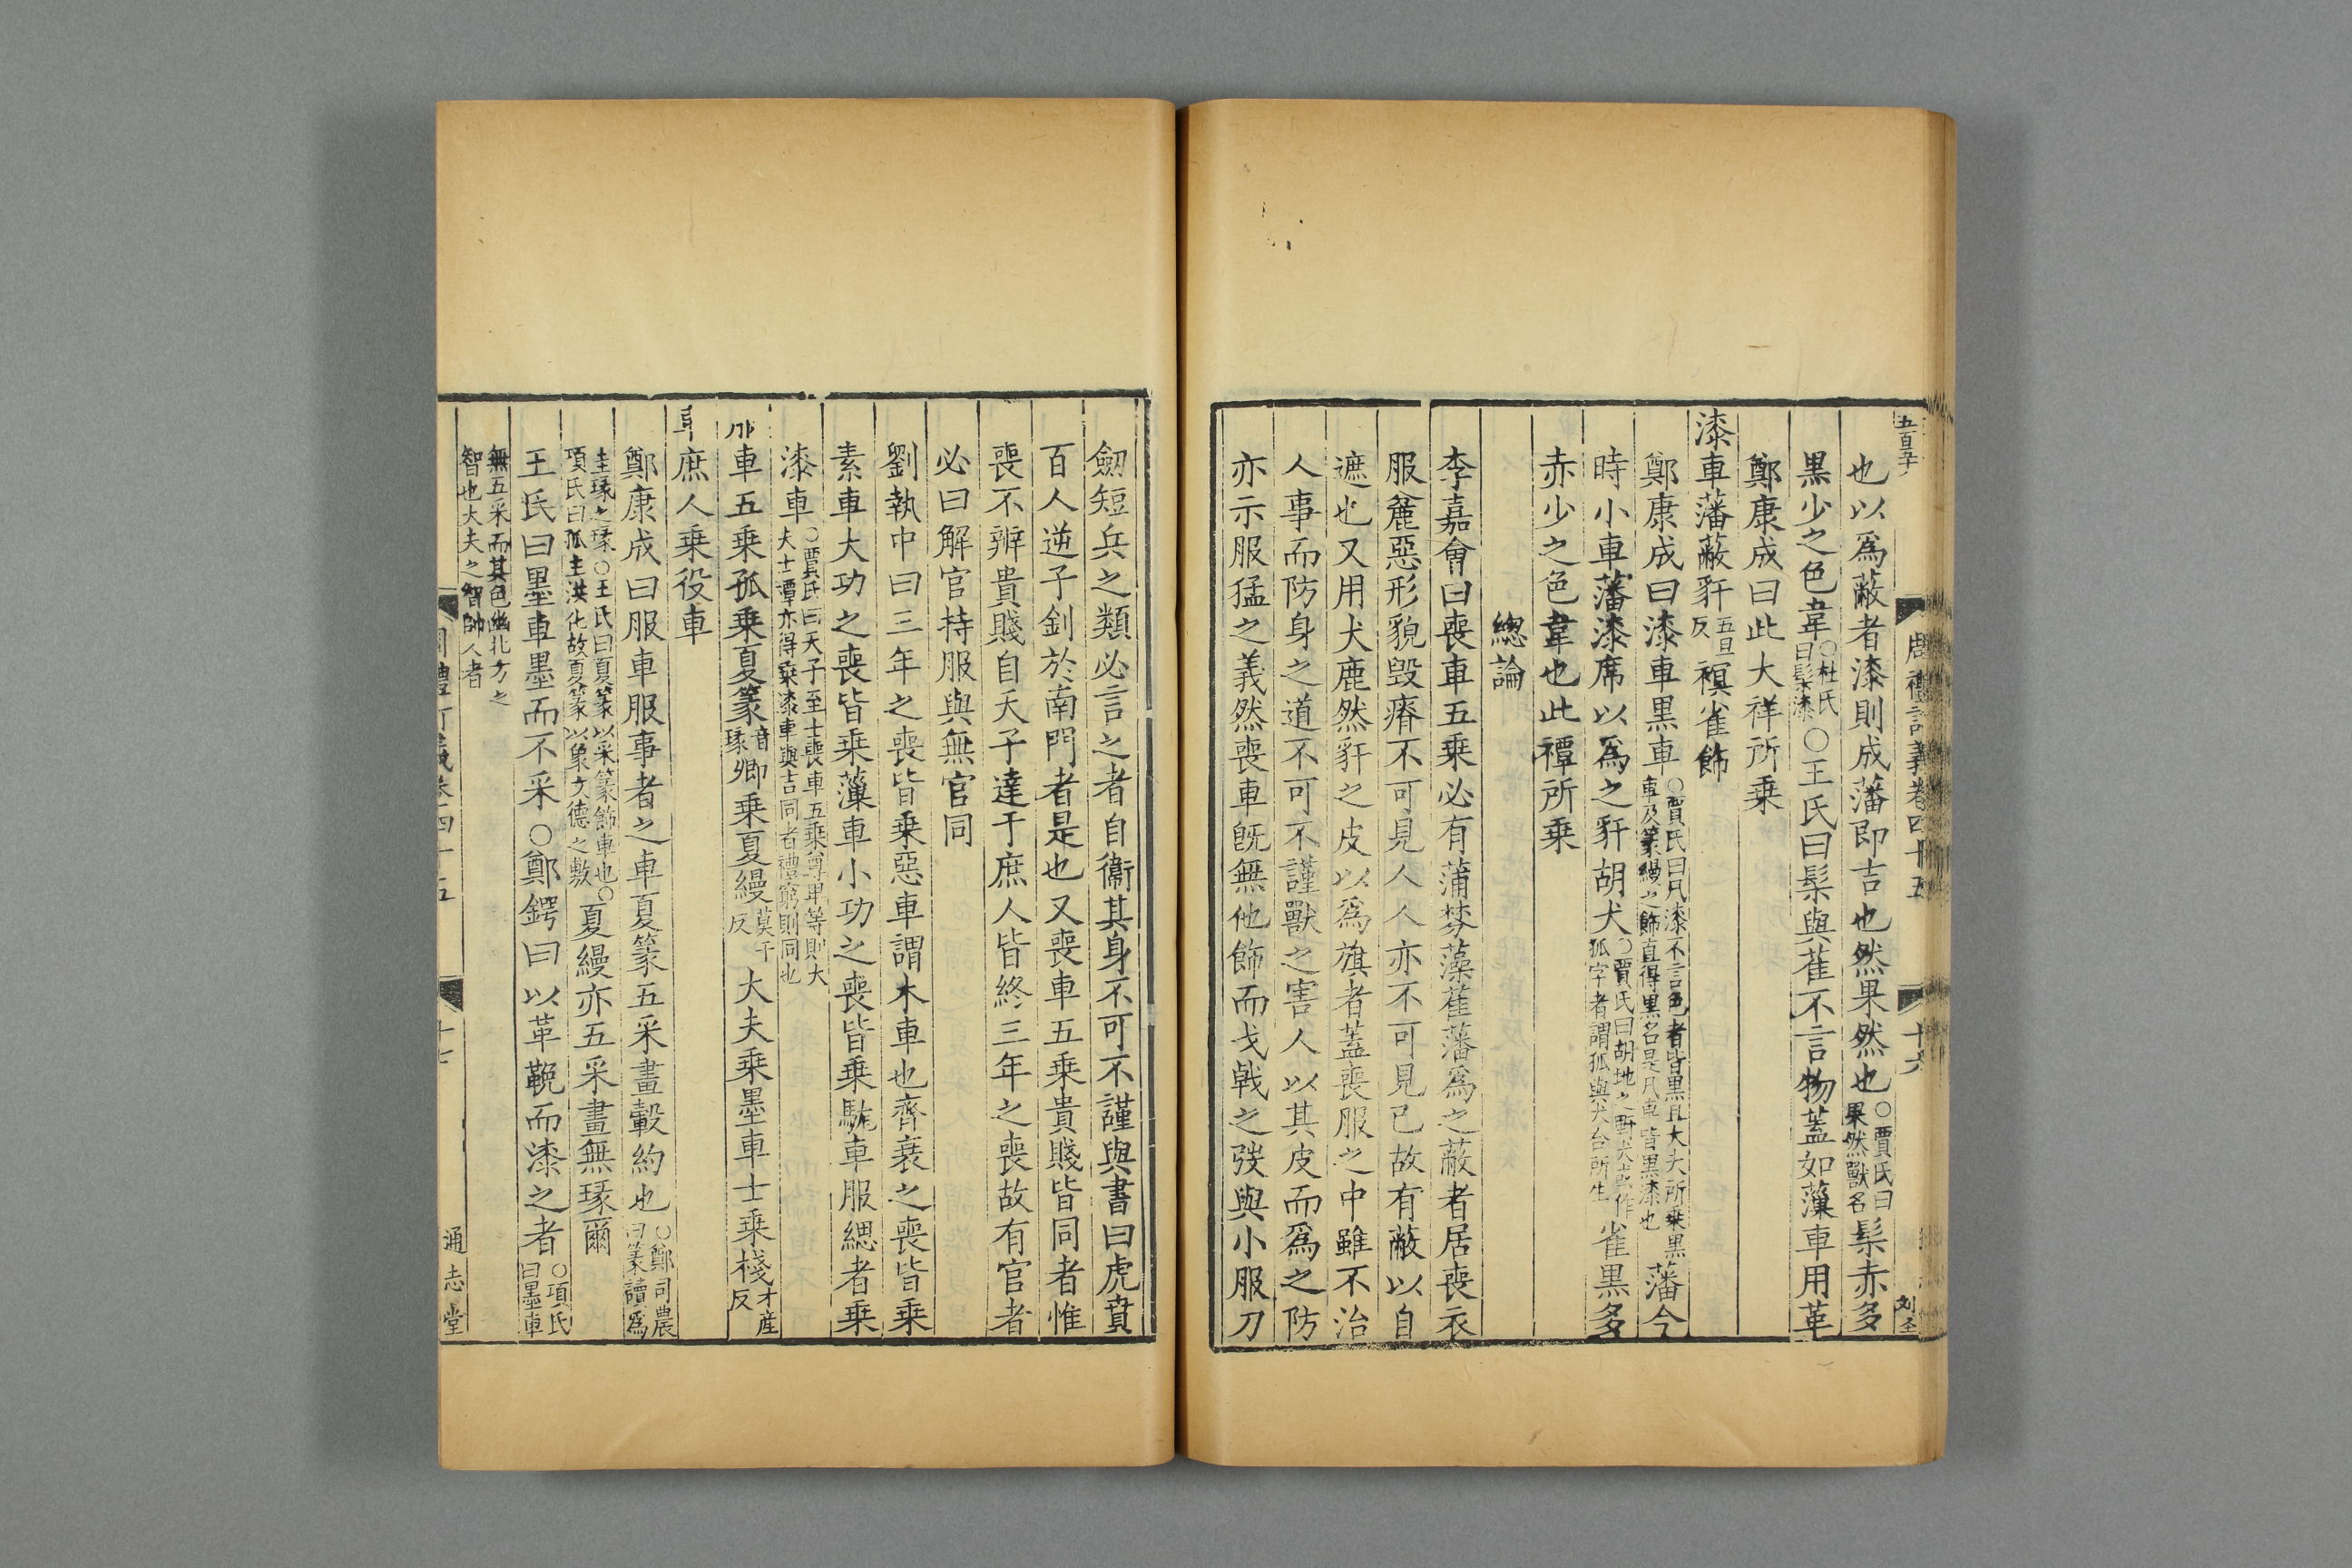 五百五十
周禮訂義卷四十五
十六
也以爲蔽者漆則成藩即吉也然果然也○賈氏曰果然獸名髹赤多
黑少之色韋○杜氏曰髹漆○王氏曰髹與萑不言物蓋如薻車用革
鄭康成曰此大祥所乘
漆車藩蔽豻五旦反䙱雀飾
鄭康成曰漆車黒車○賈氏曰凡漆不言色者皆黒且大夫所乘黒車及篆縵之飾直得黒名是凡車皆黒漆也藩今
時小車藩漆席以爲之豻胡犬○賈氏曰胡地之野犬或作狐字者謂狐與犬合所生雀黒多
赤少之色韋也此禫所乘
總論
李嘉會曰喪車五乘必有蒲棼藻萑藩爲之蔽者居喪衣
服麄惡形貌毁瘠不可見人人亦不可見己故有蔽以自
遮也又用犬鹿然豻之皮以爲旗者蓋喪服之中雖不治
人事而防身之道不可不謹獸之害人以其皮而爲之防
亦示服猛之義然喪車旣無他飾而戈戟之弢與小服刀
劒短兵之類必言之者自衞其身不可不謹與書曰虎賁
百人逆子釗於南門者是也又喪車五乘貴賤皆同者惟
喪不辨貴賤自天子達于庶人皆終三年之喪故有官者
必曰解官持服與無官同
劉執中曰三年之喪皆乘惡車謂木車也齊衰之喪皆乘
素車大功之喪皆乘薻車小功之喪皆乘駹車服緦者乘
漆車○賈氏曰天子至士喪車五乘尊卑等則大夫士禫亦得乘漆車與吉同者禮窮則同也
車五乘孤乘夏篆音瑑卿乘夏縵莫干反大夫乘墨車士乘棧才產反
庶人乘役車
鄭康成曰服車服事者之車夏篆五采畫轂約也○鄭司農曰篆讀爲
圭瑑之瑑○王氏曰夏篆以采篆飾車也○項氏曰孤主洪化故夏篆以象文德之敷夏縵亦五采畫無瑑爾
王氏曰墨車墨而不采○鄭鍔曰以革鞔而漆之者○項氏曰墨車
無五采而其色幽北方之智也大夫之智帥人者
十七
通志堂